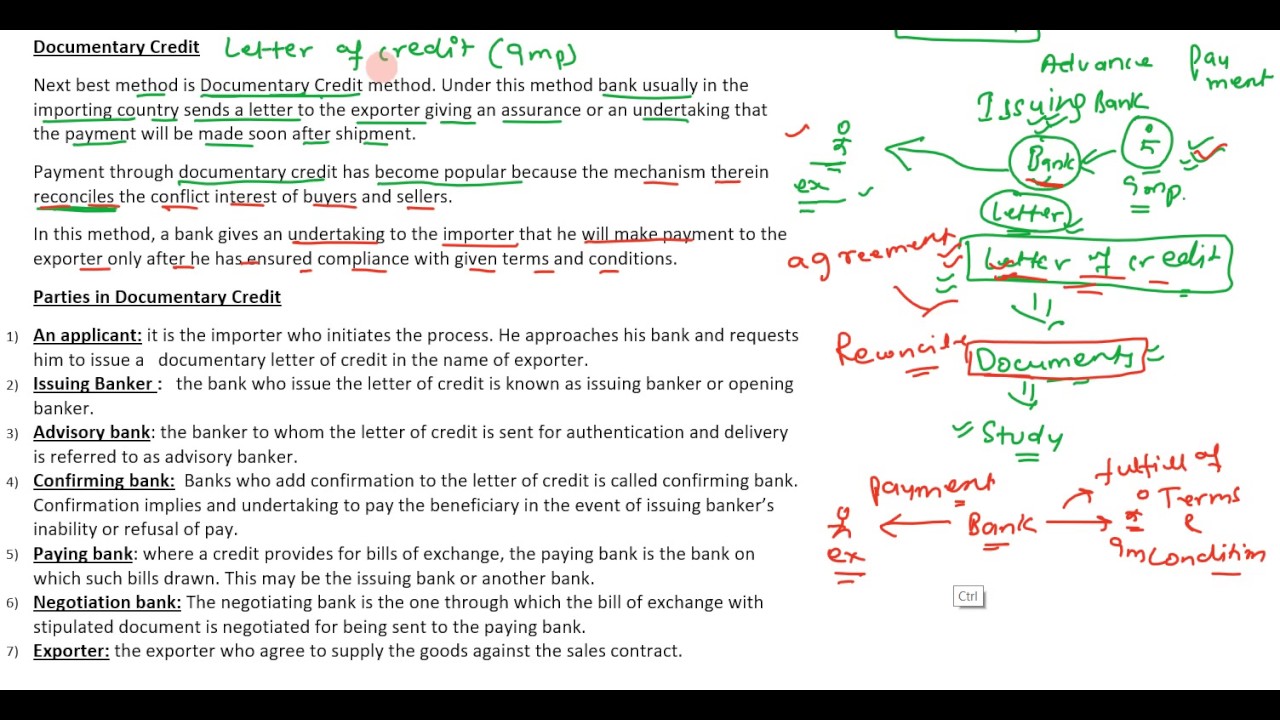 Documentary Credit Letter of credit (Imp)
Next best method is Documentary Credit method. Under this method bank usually in the
importing country sends a letter to the exporter giving an assurance or an undertaking that
the payment will be made soon after shipment.
Payment through documentary credit has become popular because the mechanism therein
reconciles the conflict interest of buyers and sellers.
In this method, a bank gives an undertaking to the importer that he will make payment to the
exporter only after he has ensured compliance with given terms and conditions.
Parties in Documentary Credit
1) An applicant: it is the importer who initiates the process. He approaches his bank and requests
him to issue a documentary letter of credit in the name of exporter.
2) Issuing Banker : the bank who issue the letter of credit is known as issuing banker or opening
banker.
3) Advisory bank: the banker to whom the letter of credit is sent for authentication and delivery
is referred to as advisory banker.
4) Confirming bank: Banks who add confirmation to the letter of credit is called confirming bank.
Confirmation implies and undertaking to pay the beneficiary in the event of issuing banker's
inability or refusal of pay.
5) Paying bank: where a credit provides for bills of exchange, the paying bank is the bank on
which such bills drawn. This may be the issuing bank or another bank.
6) Negotiation bank: The negotiating bank is the one through which the bill of exchange with
stipulated document is negotiated for being sent to the paying bank.
7) Exporter: the exporter who agree to supply the goods against the sales contract.
Advance Payment
Issuing Bank
Bank
ex
Imp.
Letter
agreement
Letter of credit
Reconcile
Documents
Study
Payment
fulfill of
Terms
&
Condition
Bank
ex
Im
Ctrl